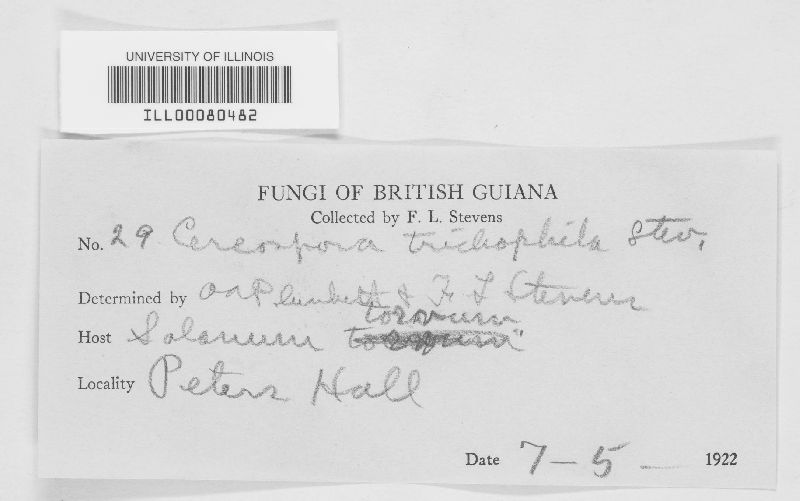 UNIVERSITY OF ILLINOIS
ILL00080482
FUNGI OF BRITISH GUIANA
Collected by F. L. Stevens
No. 29 Cercospora trichophila Stev.
Determined by OAPlunkett & F L Stevens
torvum
Host Solanum
Locality Peters Hall
Date 7-5- 1922